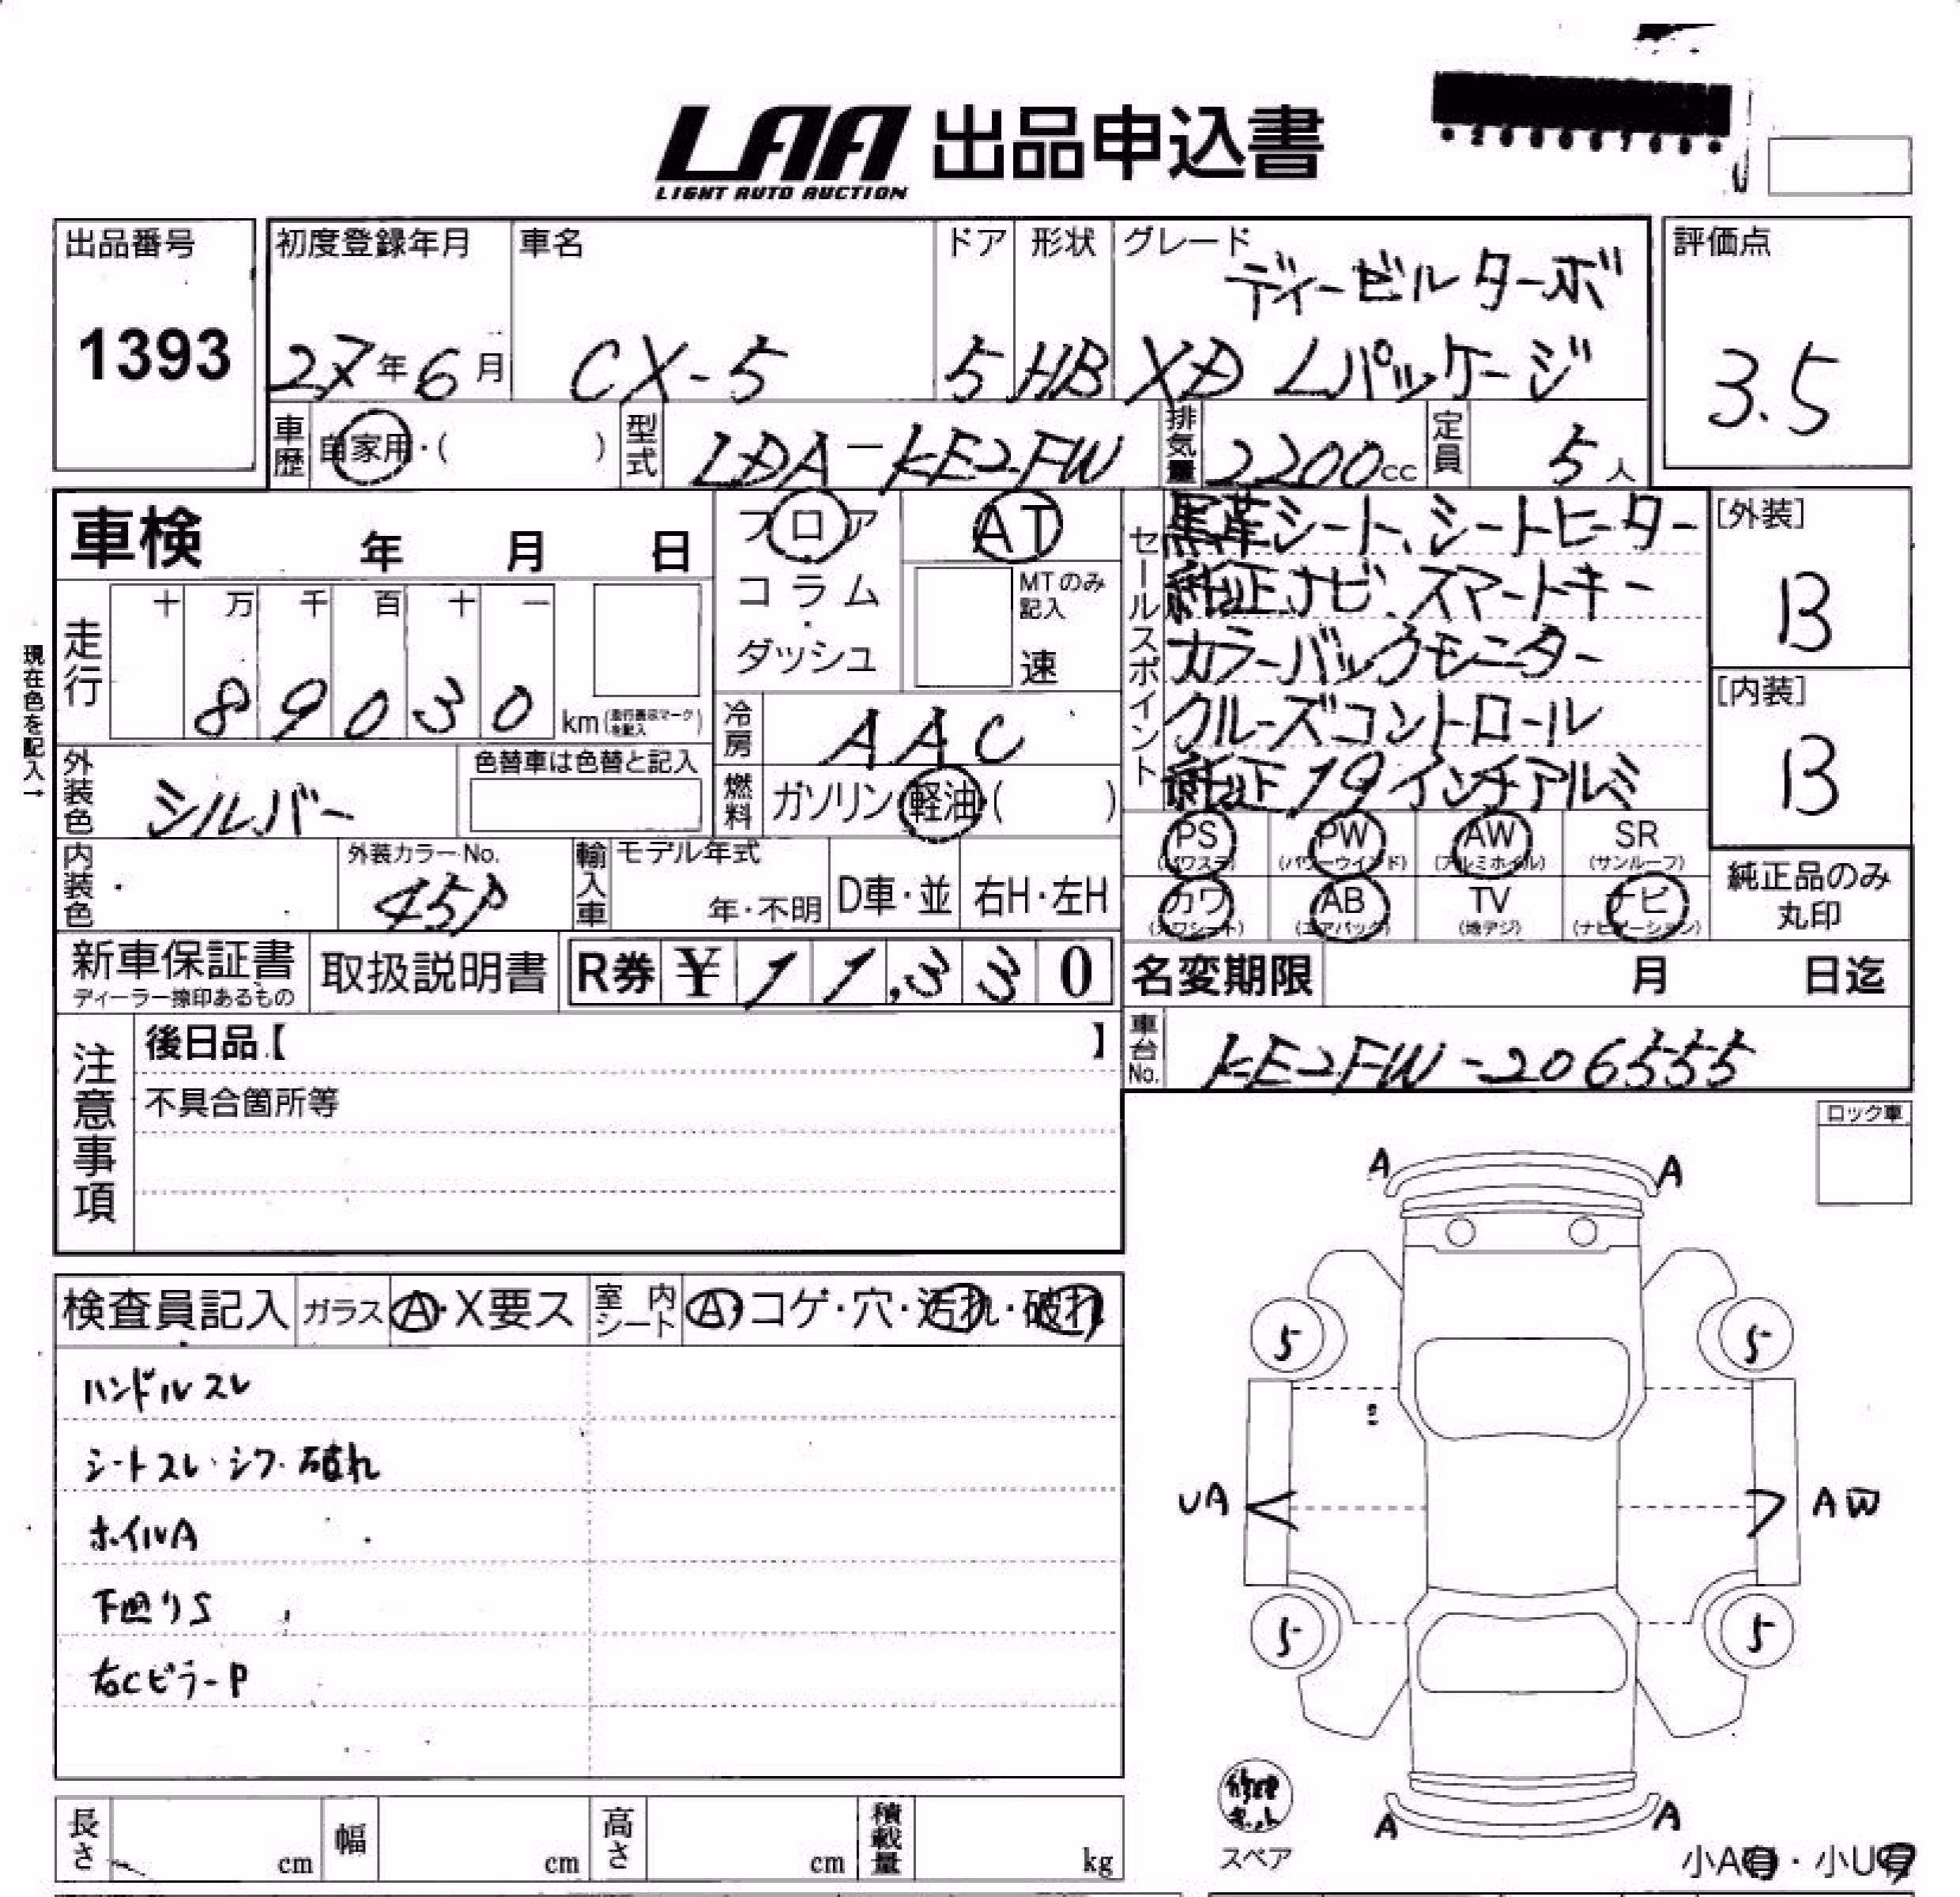 LAA 出品申込書
LIGHT AUTO AUCTION
出品番号
1393
初度登録年月
27年6月
車名
CX-5
ドア
5
形状
HB
グレード
ディーゼルターボ
XD Lパッケージ
評価点
3.5
車歴
自家用・( )
型式
LDA-KE2FW
排気量
2200cc
定員
5人
車検 年 月 日
走行
十 万 千 百 十 一
89030
km(走行表示マークを記入)
現在色を記入→
外装色
シルバー
色替車は色替と記入
内装色
外装カラーNo.
45P
輸入車
モデル年式
年・不明
D車・並
右H・左H
フロア
コラム
・
ダッシュ
AT
MTのみ記入
速
冷房
AAC
燃料
ガソリン・軽油・( )
セールスポイント
黒革シート、シートヒーター
純正ナビ、スマートキー
カラーバックモニター
クルーズコントロール
純正19インチアルミ
PS (パワステ)
PW (パワーウインド)
AW (アルミホイル)
SR (サンルーフ)
カワ (カワシート)
AB (エアバック)
TV (地デジ)
ナビ (ナビゲーション)
[外装]
B
[内装]
B
純正品のみ
丸印
新車保証書
ディーラー捺印あるもの
取扱説明書
R券 ¥ 11,330
名変期限 月 日迄
車台No.
KE2FW-206555
注意事項
後日品【 】
不具合箇所等
ロック車
検査員記入
ガラス
A・X要ス
室内シート
A・コゲ・穴・汚れ・破れ
ハンドルスレ
シートスレ・シワ・破れ
ホイルA
下回りS
右CピラーP
A A
5 5
UA AW
5 5
A A
スペア
小A有・小U有
長さ cm
幅 cm
高さ cm
積載量 kg